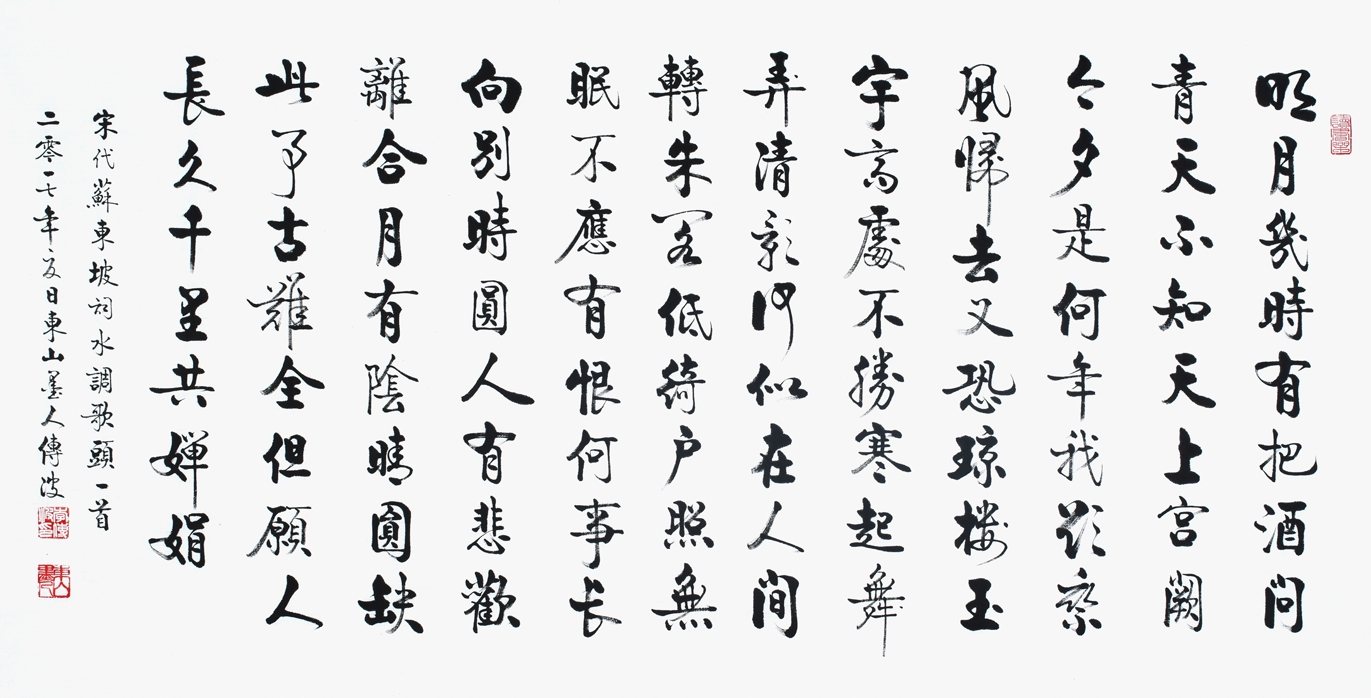 明月幾時有把酒問
青天不知天上宮闕
今夕是何年我欲乘
風歸去又恐琼楼玉
宇高處不勝寒起舞
弄清影何似在人間
轉朱閣低綺户照無
眠不應有恨何事长
向别時圓人有悲歡
離合月有陰晴圓缺
此事古難全但願人
長久千里共嬋娟
宋代蘇東坡詞水調歌頭一首
二零一七年夏日東山墨人傳波